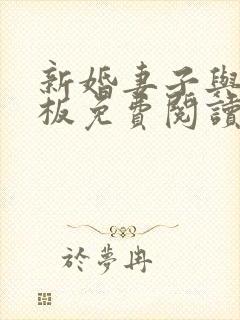 新婚妻子與
板免費閱讀
於夢冉